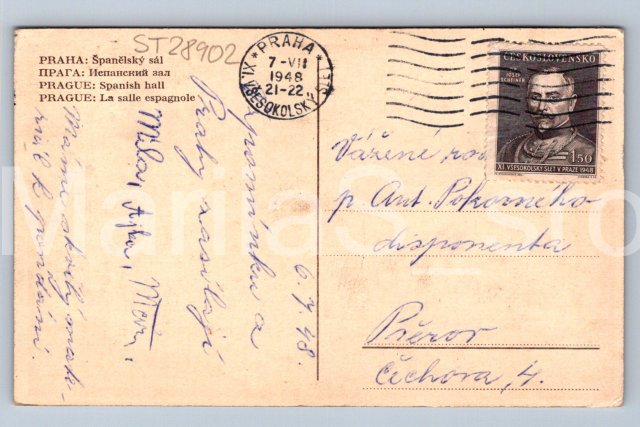 ST28902
PRAHA: Španělský sál
ПРАГА: Испанский зал
PRAGUE: Spanish hall
PRAGUE: La salle espagnole
PRAHA
7-VII
1948
21-22
XI. VŠESOKOLSKÝ SLET
ČESKOSLOVENSKO
JOSEF
SCHEINER
1.50
XI. VŠESOKOLSKÝ SLET V PRAZE 1948
6.7.48.
Vzpomínku z
Prahy zasílají
Milan,
Máme skvělý
k pondání.
Vážené
p. Ant. Pokorného
disponenta
Přerov
Čechova, 4.
Maria S_sto